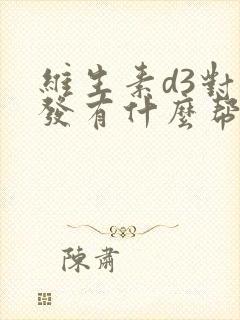 維生素d3對
發有什麼幫
陳肅